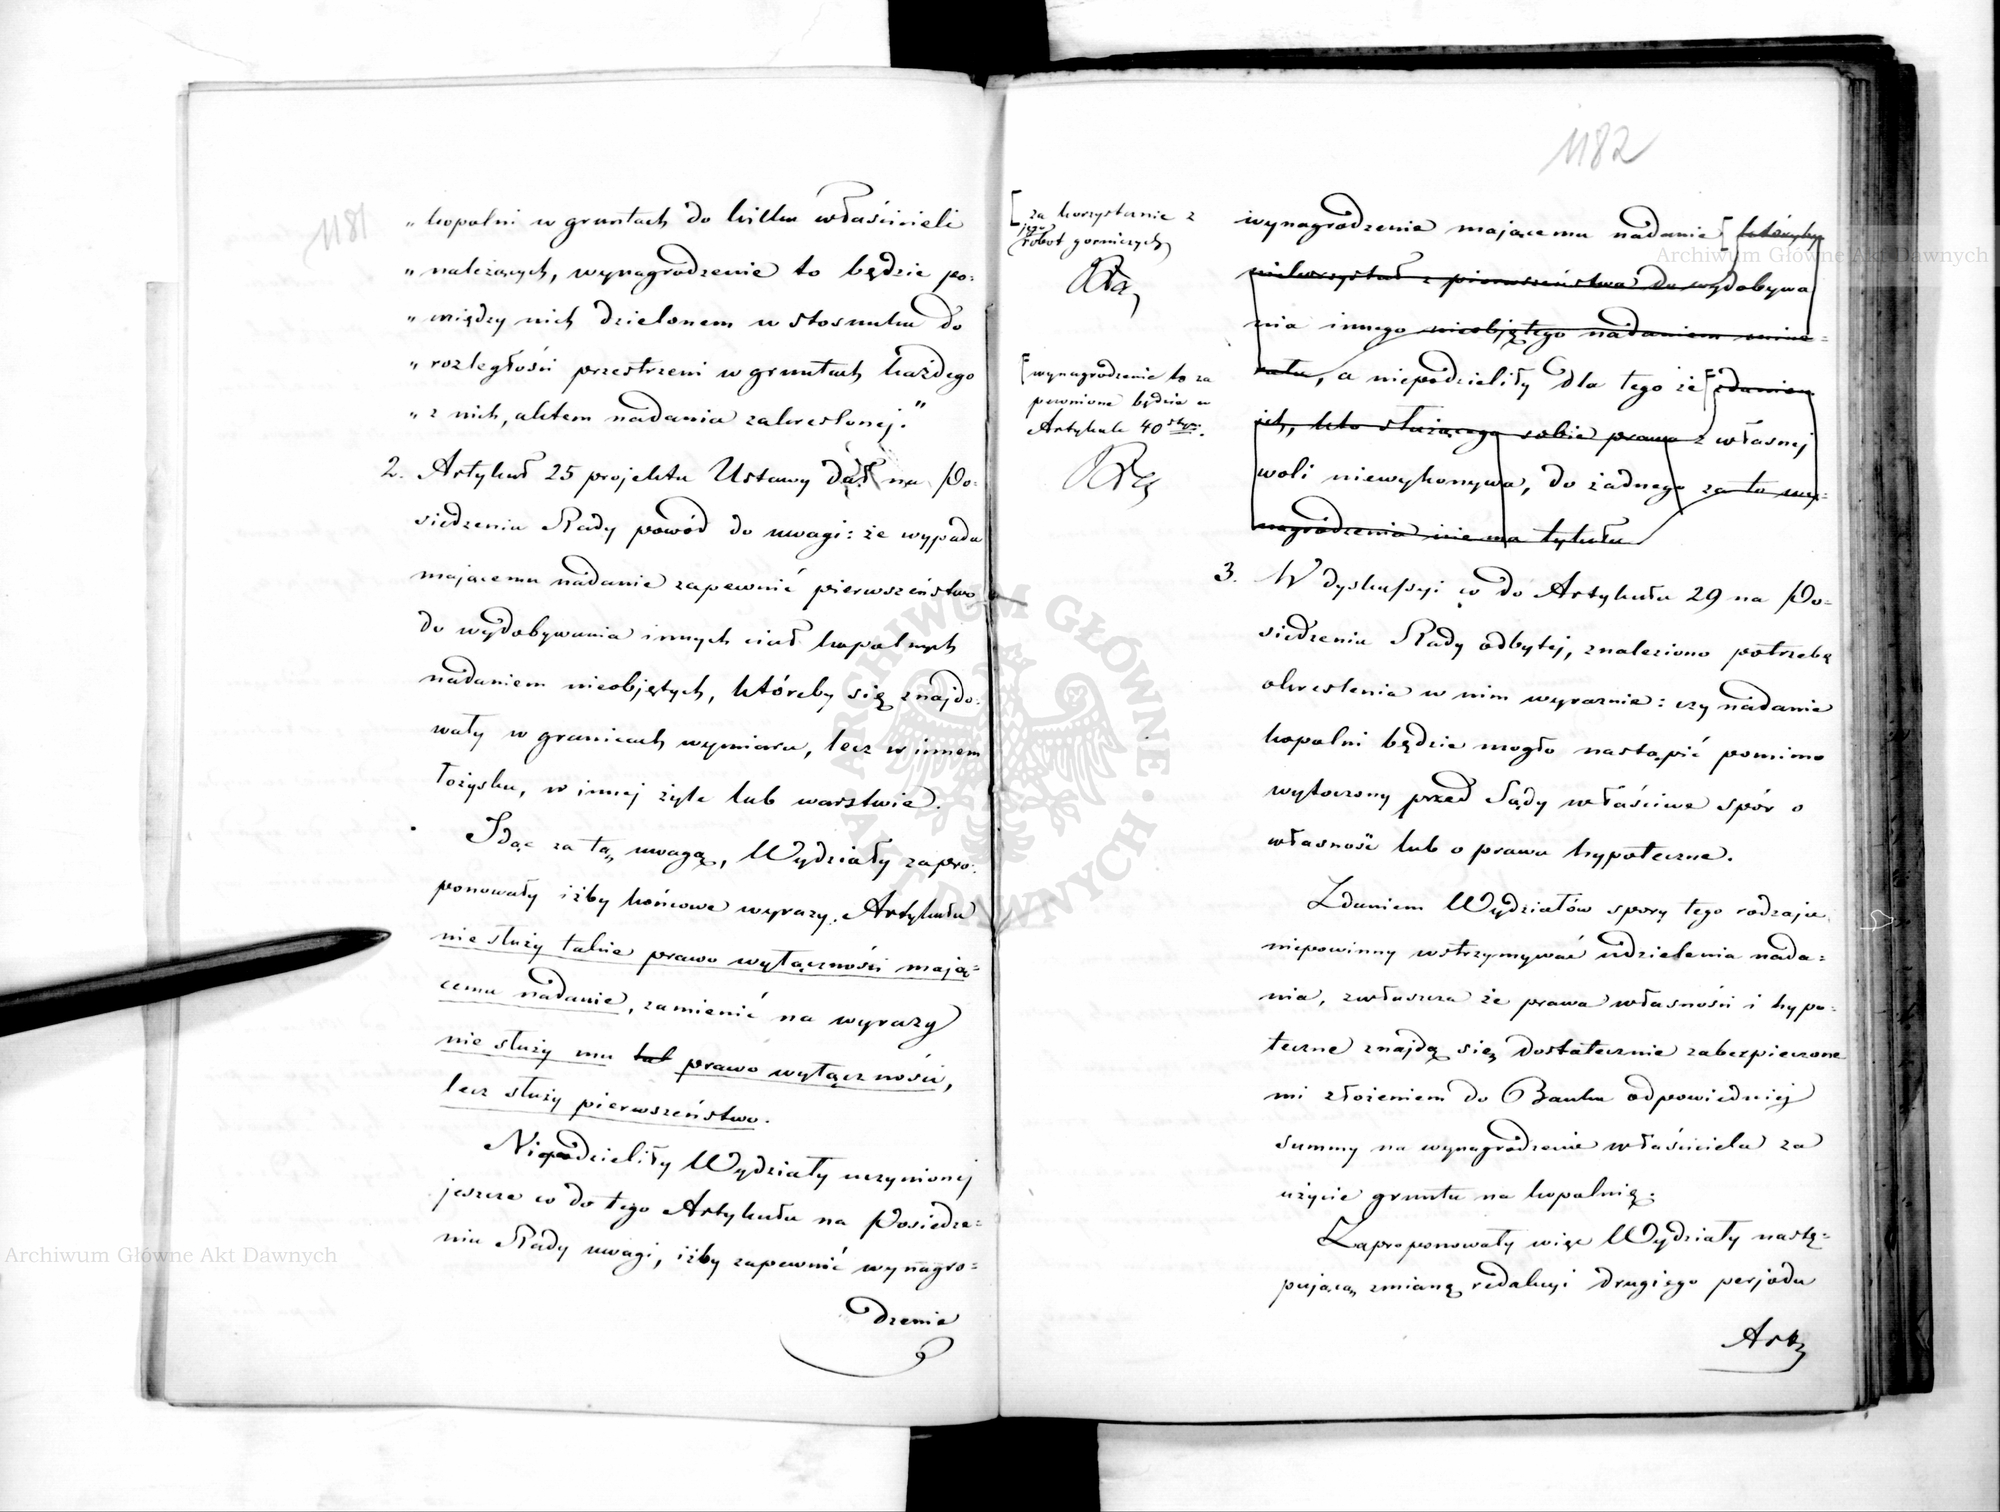 1181
„ kopalni w gruntach do kilku właścicieli
„ należących, wynagrodzenie to będzie po-
„ między nich dzielonem w stosunku do
„ rozległości przestrzeni w gruntach każdego
„ z nich, aktem nadania zakreślonej."
2. Artykuł 25 projektu Ustawy dał na Po-
siedzeniu Rady powód do uwagi: że wypada
mającemu nadanie zapewnić pierwszeństwo
do wydobywania innych ciał kopalnych
nadaniem nieobjętych, któreby się znajdo-
wały w granicach wymiaru, lecz w innem
łożysku, w innej żyle lub warstwie.
Idąc za tą uwagą, Wydziały zapro-
ponowały iżby końcowe wyrazy Artykułu
nie służy takie prawo wyłączności mają-
cemu nadanie, zamienić na wyrazy
nie służy mu prawo wyłączności,
lecz służy pierwszeństwo.
Niepodzieliły Wydziały uczynionej
jeszcze co do tego Artykułu na Posiedze-
niu Rady uwagi, iżby zapewnić wynagro-
dzenie
1182
za korzystanie z
jego
robot gorniczych
wynagrodzenie to za
pewnione będzie w
Artykule 40stym.
wynagrodzenie mającemu nadanie któryby
niekorzystał z pierwszeństwa do wydobywa
nia innego nieobjętego nadaniem mine-
rału, a niepodzieliły dla tego że zdaniem
ich, kto służącego sobie prawa z własnej
woli niewykonywa, do żadnego za to wy-
nagrodzenia nie ma tytułu
3. W dyskussyi co do Artykułu 29 na Po-
siedzeniu Rady odbytej, znaleziono potrzebę
okreslenia w nim wyraznie: czy nadanie
kopalni będzie mogło nastąpić pomimo
wytoczony przed Sądy właściwe spór o
własność lub o prawa hypoteczne.
Zdaniem Wydziałów spory tego rodzaju
niepowinny wstrzymywać udzielenia nada-
nia, zwłaszcza że prawa własności i hypo-
teczne znajdą się dostatecznie zabezpieczone
mi złożeniem do Banku odpowiedniej
summy na wynagrodzenie właściciela za
użycie gruntu na kopalnię.
Zaproponowały więc Wydziały nastę-
pującą zmianę redakcyi drugiego perjodu
Art.
Archiwum Główne Akt Dawnych
Archiwum Główne Akt Dawnych
ARCHIWUM GŁÓWNE AKT DAWNYCH